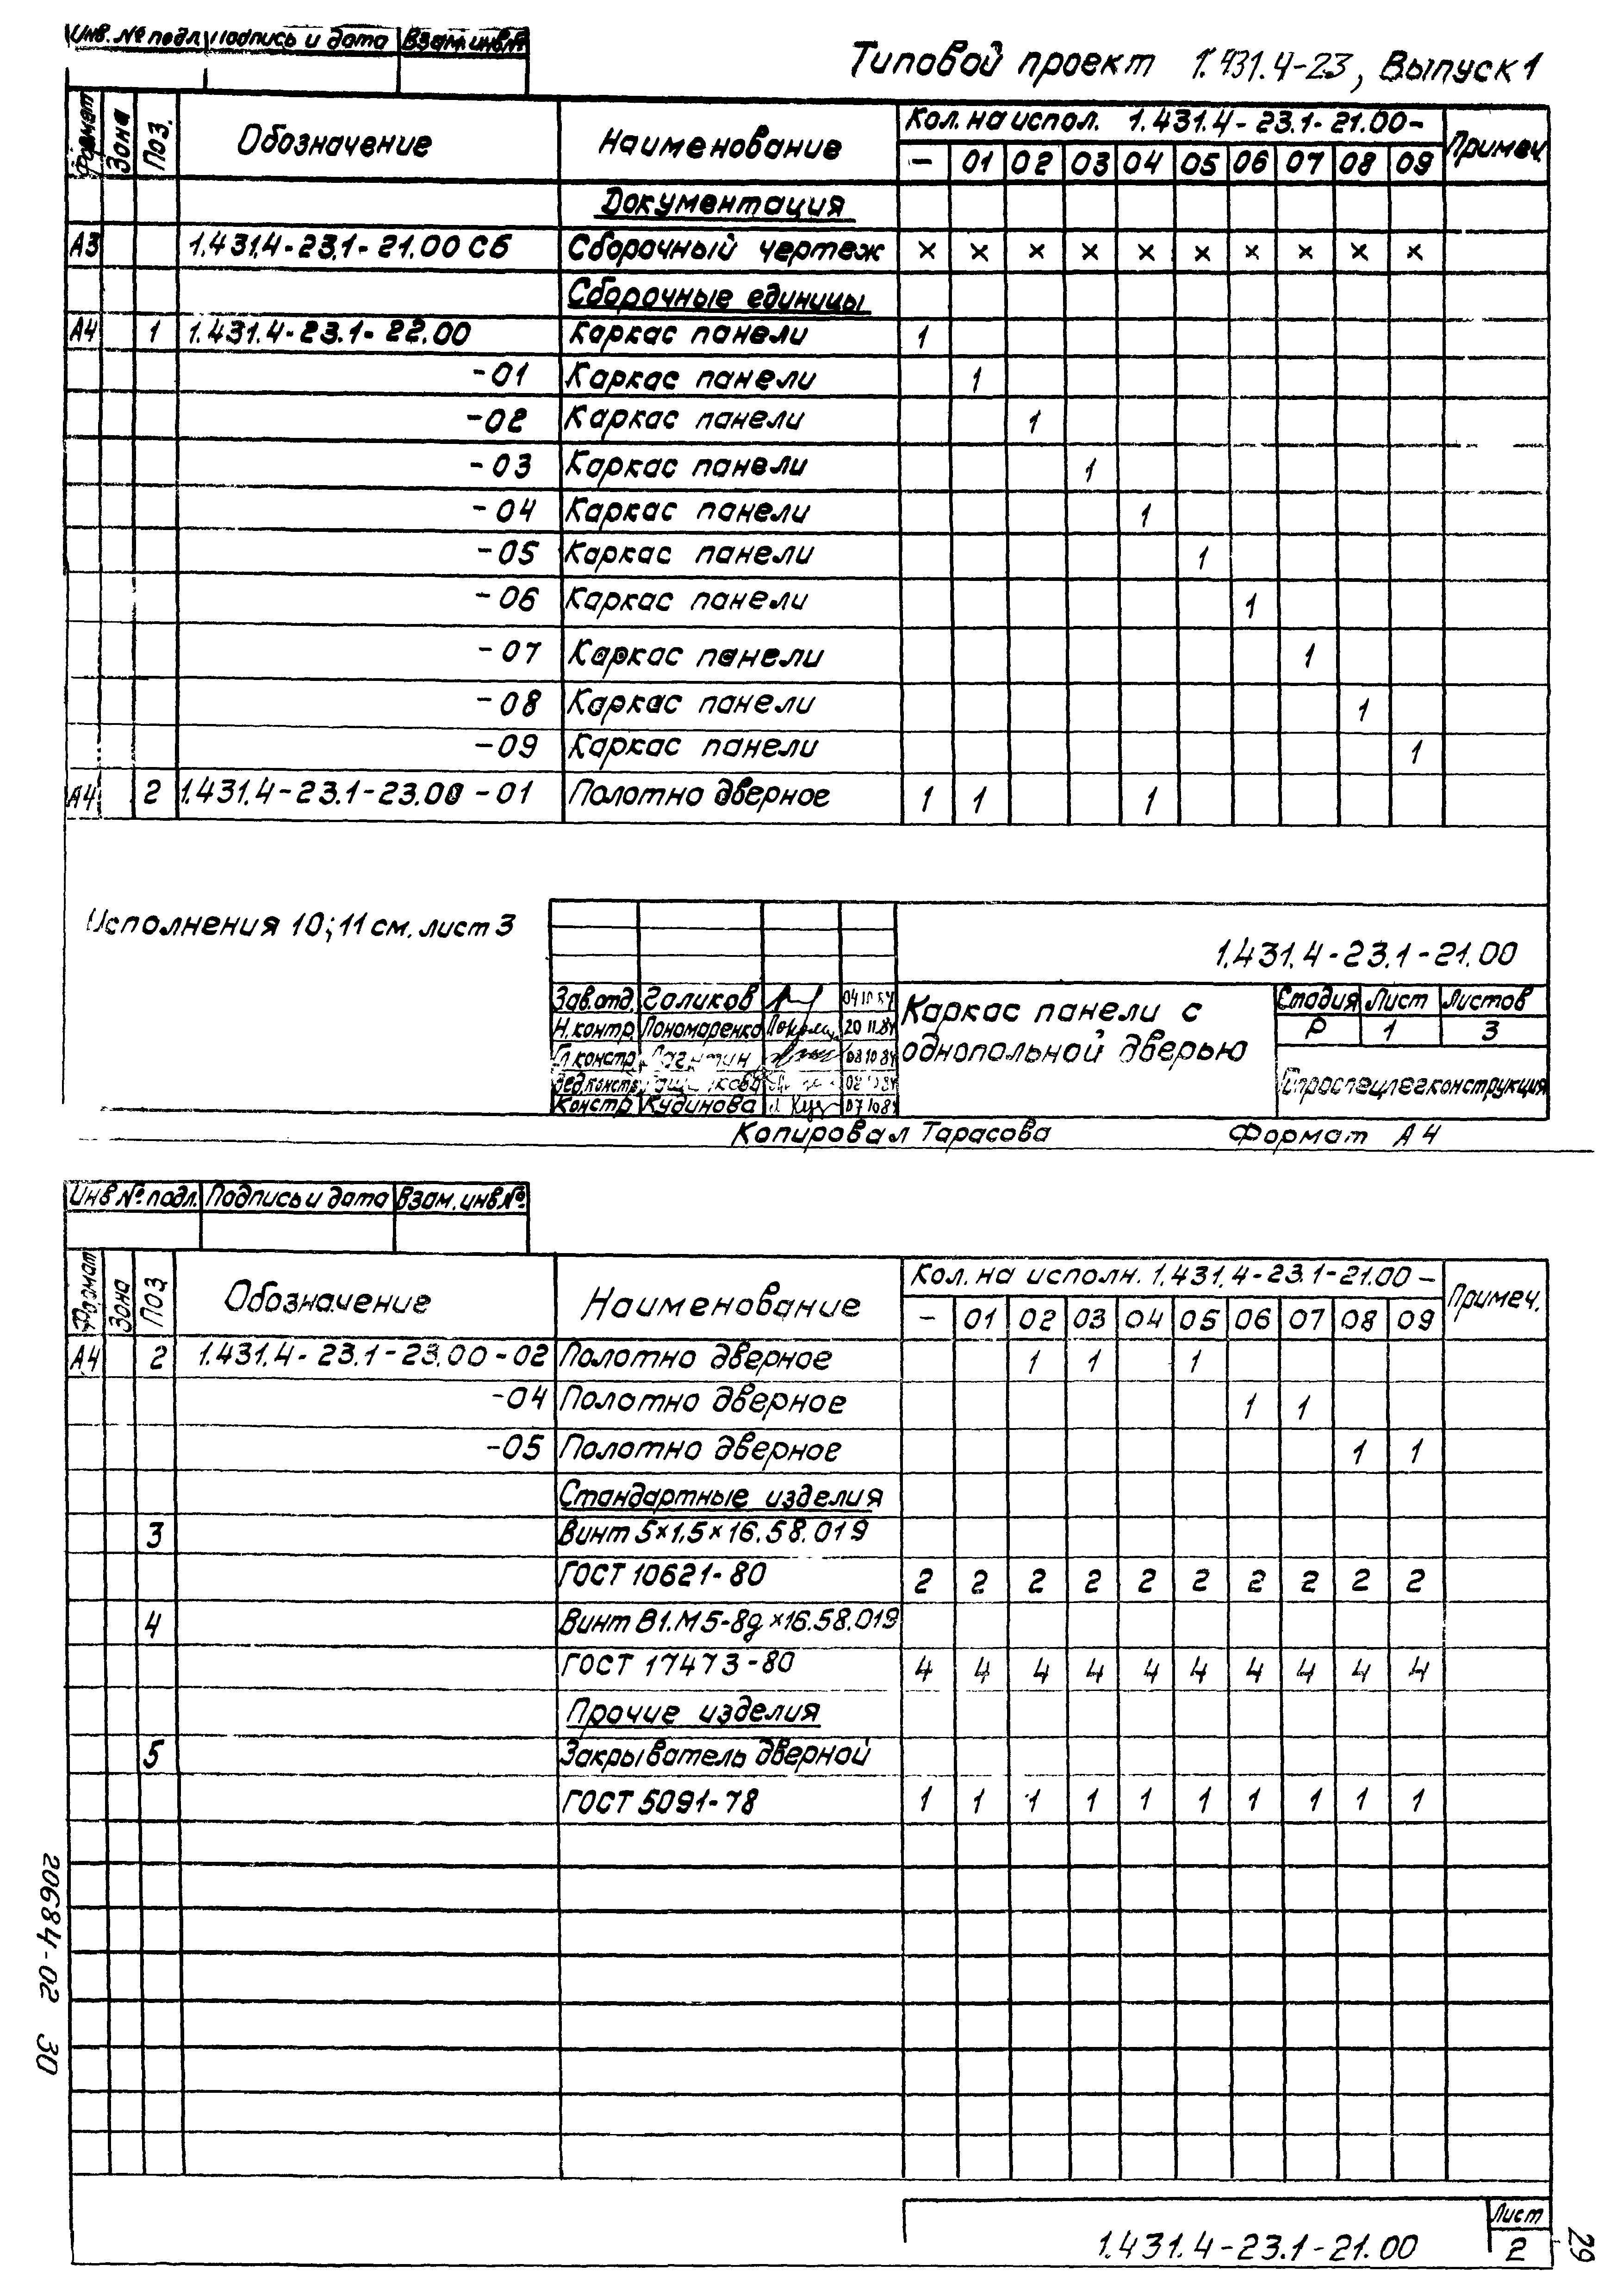 Инв. № подл. Подпись и дата Взам. инв. №
Типовой проект 1.431.4-23, Выпуск 1
Формат Зона Поз. Обозначение Наименование Кол. на испол. 1.431.4-23.1-21.00- Примеч.
– 01 02 03 04 05 06 07 08 09
Документация
А3 1.431.4-23.1-21.00 СБ Сборочный чертеж × × × × × × × × × ×
Сборочные единицы
А4 1 1.431.4-23.1-22.00 Каркас панели 1
-01 Каркас панели 1
-02 Каркас панели 1
-03 Каркас панели 1
-04 Каркас панели 1
-05 Каркас панели 1
-06 Каркас панели 1
-07 Каркас панели 1
-08 Каркас панели 1
-09 Каркас панели 1
А4 2 1.431.4-23.1-23.00-01 Полотно дверное 1 1 1
Исполнения 10; 11 см. лист 3
1.431.4-23.1-21.00
Зав. отд. Галиков 04 10 84
Н. контр. Пономаренко 20 11.84
Гл. констр. 08 10 84
Вед. констр.
Констр. Кудинова 07 10 84
Каркас панели с
однопольной дверью
Стадия Лист Листов
Р 1 3
Гипроспецлегконструкция
Копировал Тарасова Формат А4
Инв № подл. Подпись и дата Взам. инв. №
Формат Зона Поз Обозначение Наименование Кол. на исполн. 1.431.4-23.1-21.00- Примеч.
– 01 02 03 04 05 06 07 08 09
А4 2 1.431.4-23.1-23.00-02 Полотно дверное 1 1 1
-04 Полотно дверное 1 1
-05 Полотно дверное 1 1
Стандартные изделия
3 Винт 5×1.5×16.58.019
ГОСТ 10621-80 2 2 2 2 2 2 2 2 2 2
4 Винт В1.М5-8g×16.58.019
ГОСТ 17473-80 4 4 4 4 4 4 4 4 4 4
Прочие изделия
5 Закрыватель дверной
ГОСТ 5091-78 1 1 1 1 1 1 1 1 1 1
20684-02 30
1.431.4-23.1-21.00
Лист
2
29